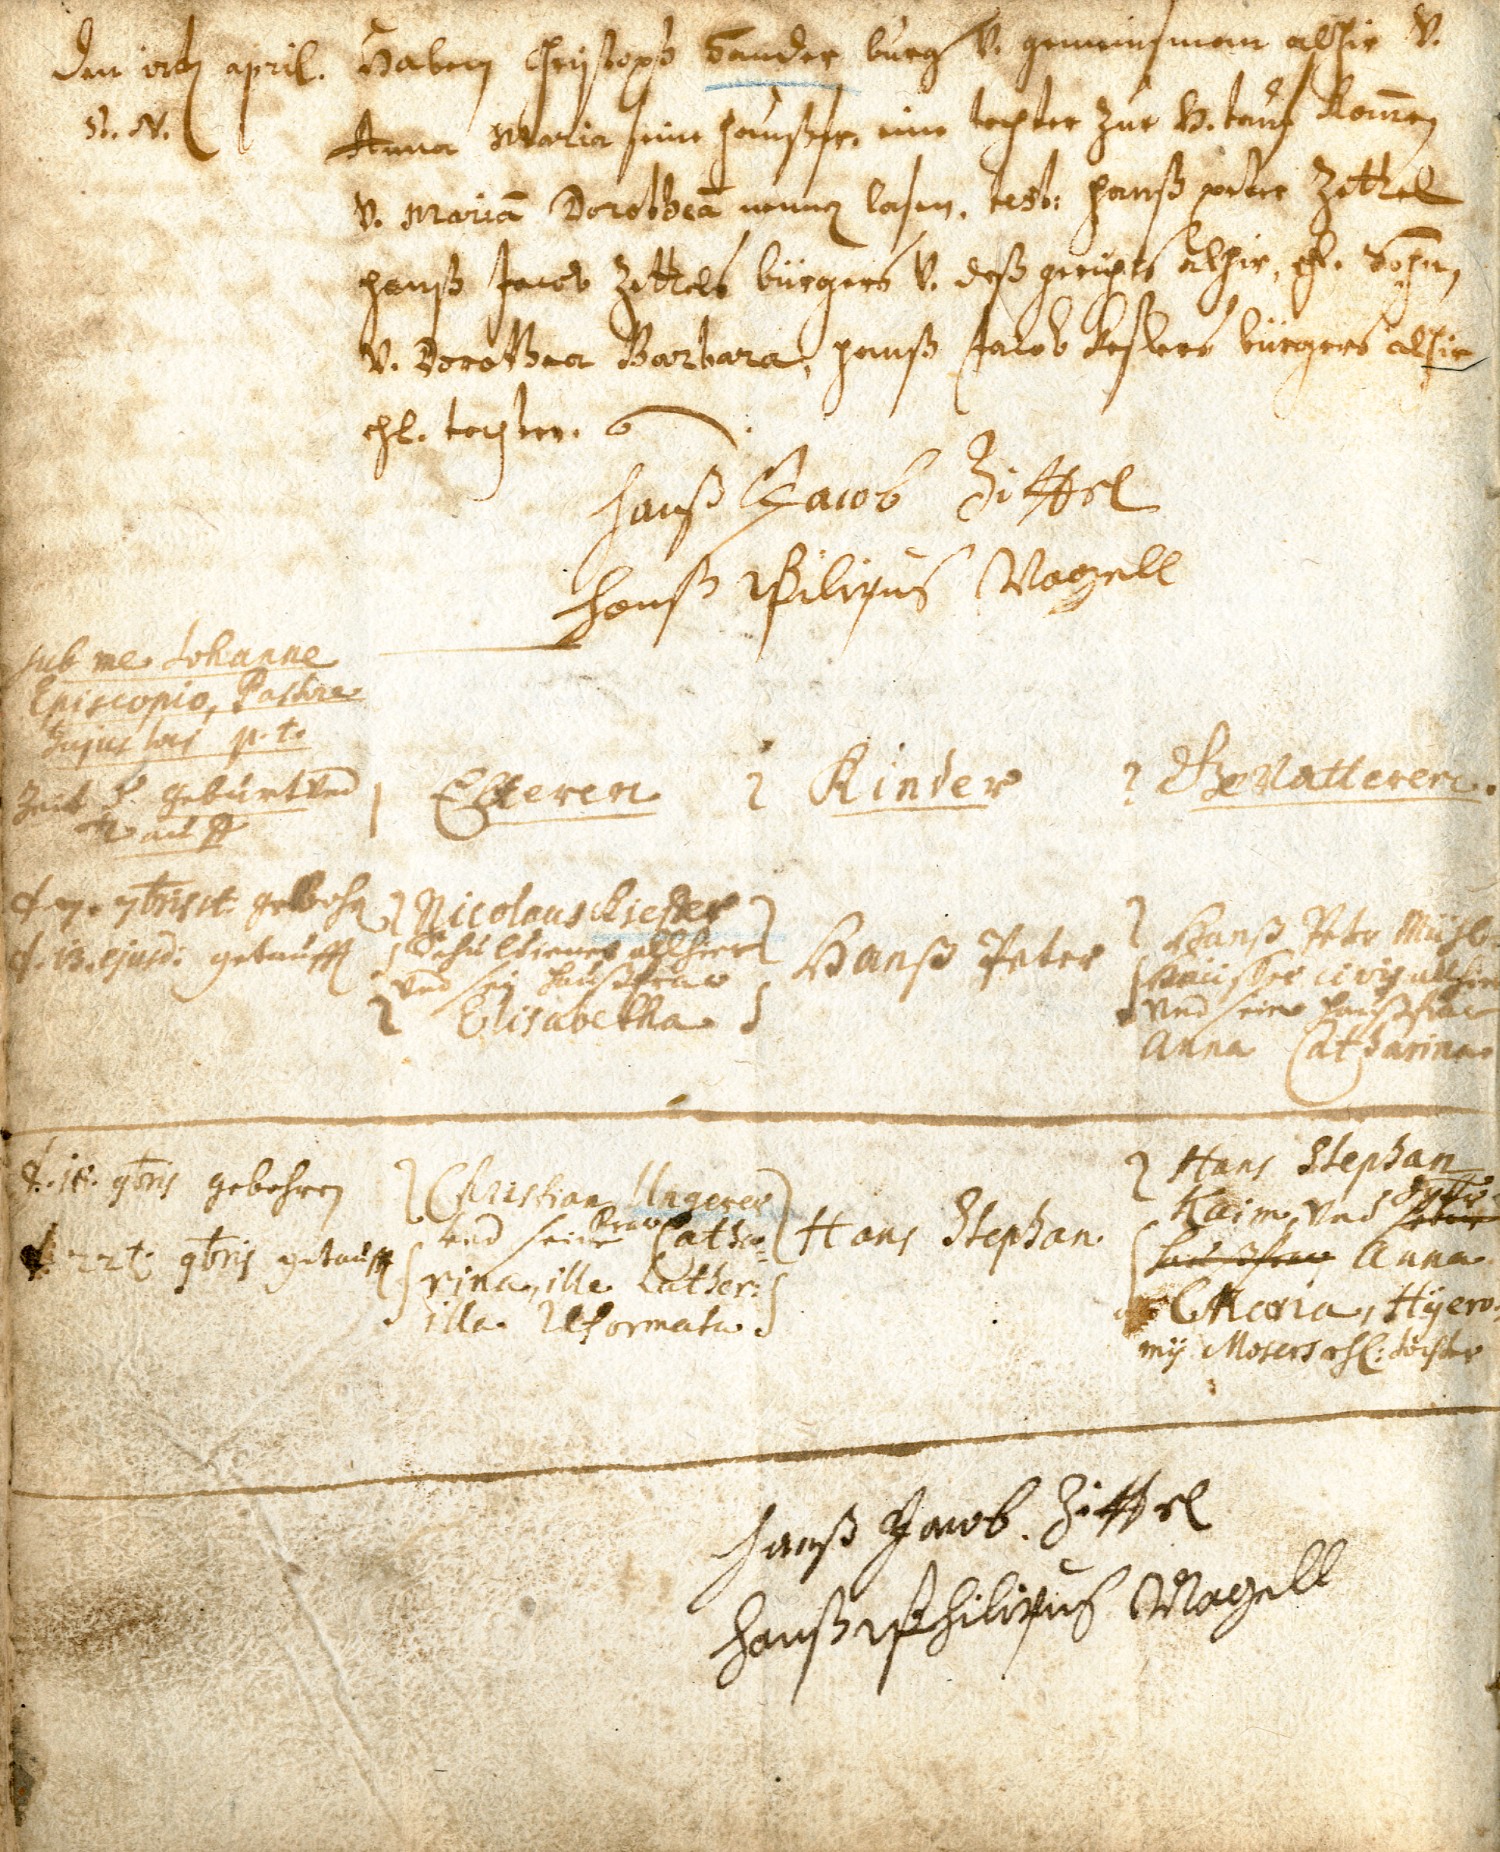 Den april. Haben Christoph Sander burg V. gemeinsman alhir V.
st. N. Anna Maria seine haußfr. eine tochter zur H. tauf kom̄en
V. Mariā Dorotheā nennen lasen. test: Hanß peter Zittel
Hanß Jacob Zittels bürgers V. deß gerichts alhir, ehl. Sohn,
V. Dorothea Barbara, Hanß Jacob Keslers bürgers alhir
ehl. tochter.
Hanß Jacob Zittel
Hanß Philipus Nagell
sub me Johanne
Episcopio, Pastore
hujus loci p. t.
Zeit d. geburt vnd Tauff
Elteren Kinder Gevatteren.
d. 7. 7bris gebohrn
d. 13. ejusd: getaufft
Nicolaus Kiefer
Schuldiener allhier
vnd sein haußfraw
Elisabetha
Hanß Peter
Hanß Peter
civis allhier
vnd seine haußfraw
Anna Catharina.
d. 18. 9bris gebohren
d. 22t. 9bris getaufft
Christian Ungerer
vnd seine fraw Catha-
rina, ille Luther:
illa Reformata.
Hans Stephan.
Hans Stephan
Kaim vnd
Anna
Maria, Hyero-
mij Mosers ehl: dochter
Hanß Jacob. Zittel
Hanß Philipus Nagell